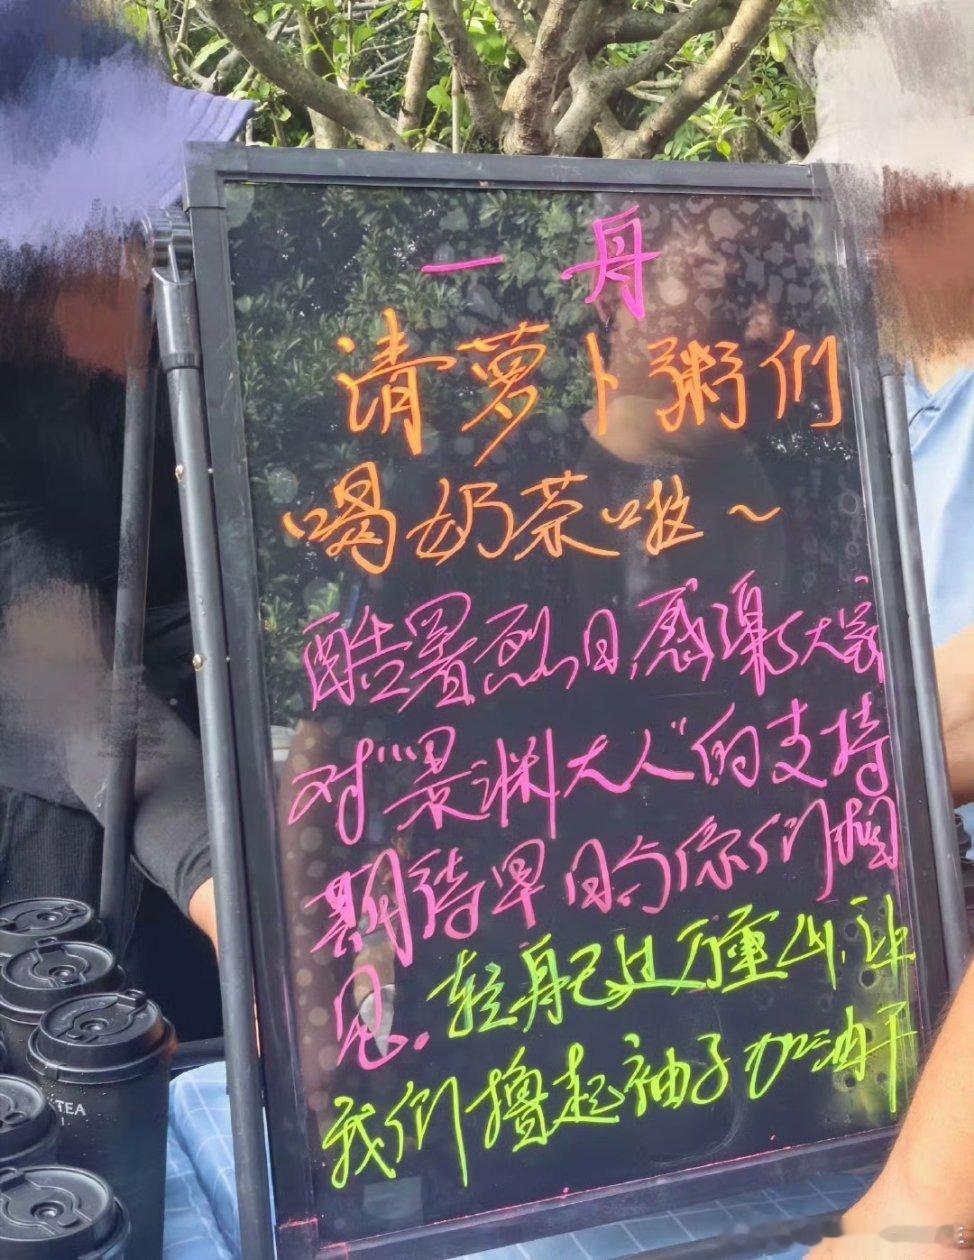 一丹
请萝卜粥们
喝奶茶啦~
酷署烈日,感谢大家
对"景渊大人"的支持
期待早日与你们相
见.轻舟已过万重山,让
我们撸起袖子加油干
TEA